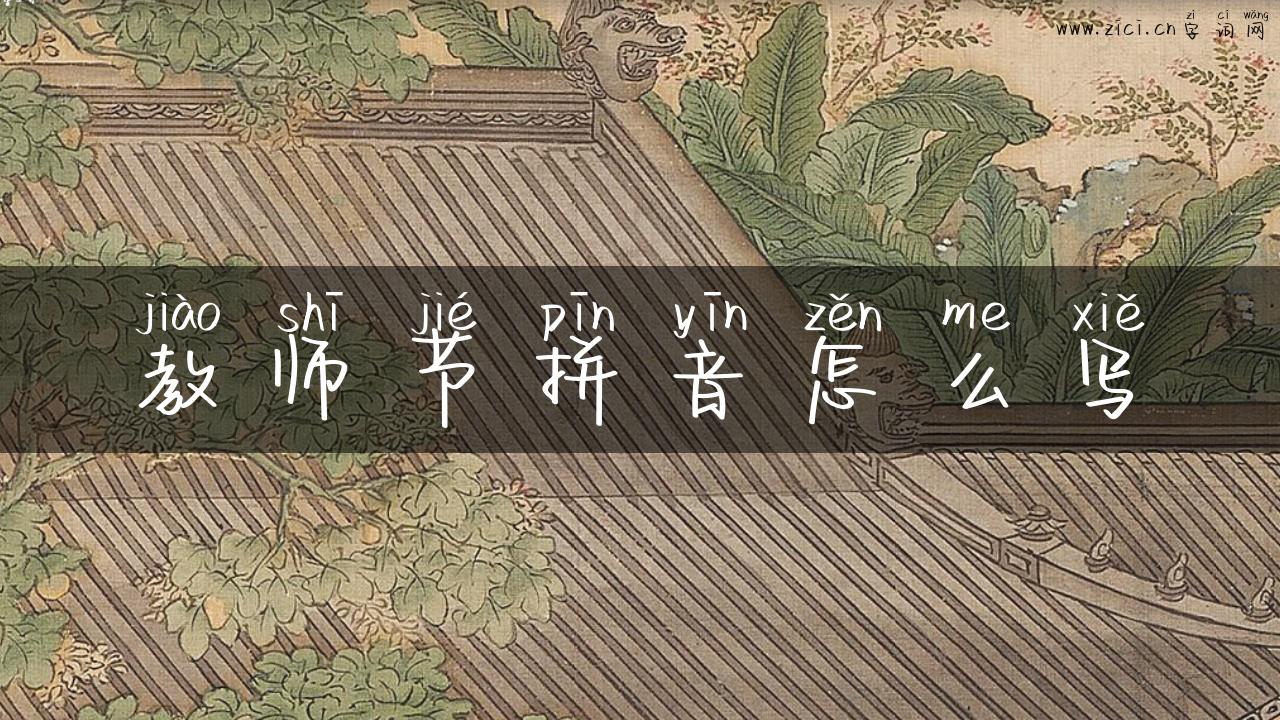 zì cí wǎng
www.zici.cn 字词网
jiào shī jié pīn yīn zěn me xiě
教师节拼音怎么写